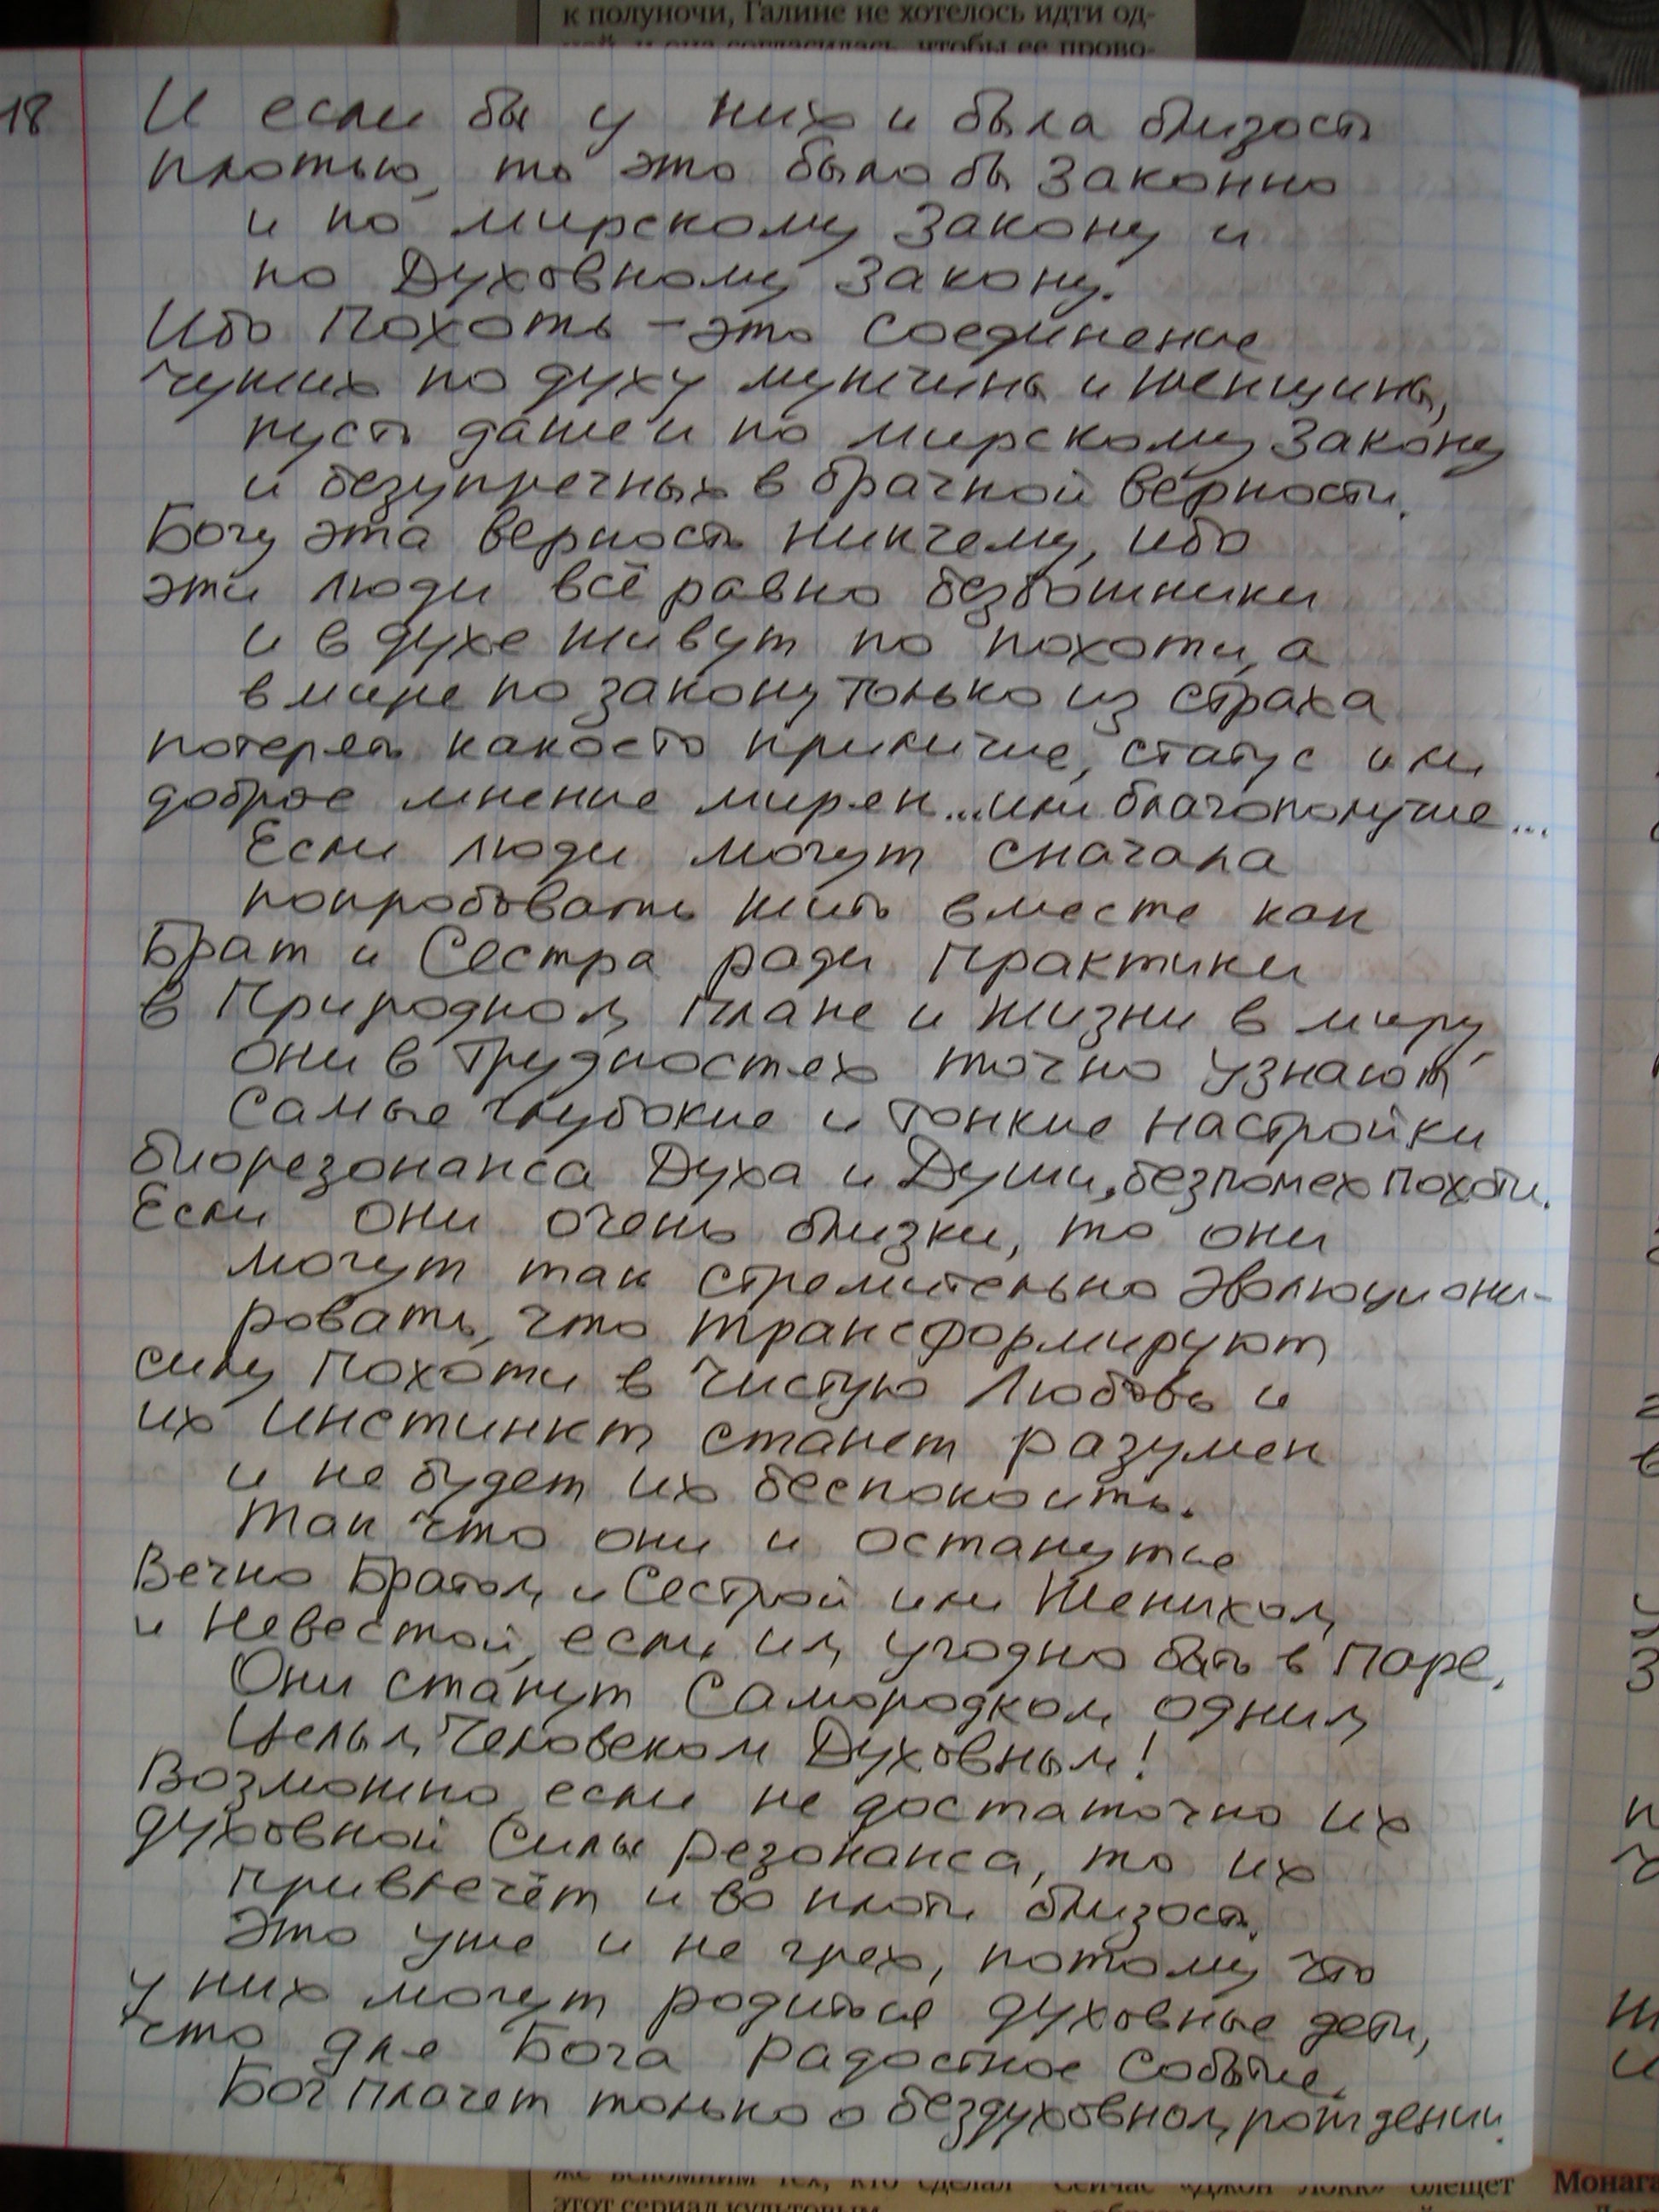 к полуночи, Галине не хотелось идти од-
ной, и она согласилась, чтобы ее прово-
18
И если бы у них и была близость
плотью, то это было бы законно
и по мирскому Закону и
по Духовному Закону.
Ибо Похоть – это соединение
чужих по духу мужчины и женщины,
пусть даже и по мирскому Закону
и безупречных в брачной верности.
Богу эта верность никчему, ибо
эти люди всё равно безбожники
и в духе живут по похоти, а
в мире по закону только из страха
потерять какоето приличие, статус или
доброе мнение мирян...или благополучие...
Если люди могут сначала
попробовать жить вместе как
Брат и Сестра ради Практики
в Природном плане и жизни в миру,
они в трудностях точно узнают
самые глубокие и тонкие настройки
биорезонанса Духа и Души, без помех похоти.
Если они очень близки, то они
могут так стремительно эволюциони-
ровать, что трансформируют
силу Похоти в Чистую Любовь и
их инстинкт станет разумен
и не будет их беспокоить.
Так что они и останутся
Вечно Братом и Сестрой или Женихом
и Невестой, если им угодно быть в Паре.
Они станут Самородком одним
Целым, Человеком Духовным!
Возможно, если не достаточно их
духовной Силы резонанса, то их
привлечёт и во плоти близость.
Это уже и не грех, потому что
у них могут родиться духовные дети,
что для Бога радостное событие.
Бог плачет только о бездуховном рождении.
же вспомним тех, кто сделал
этот сериал культовым
Сейчас «Джон Локк» блещет
Монага